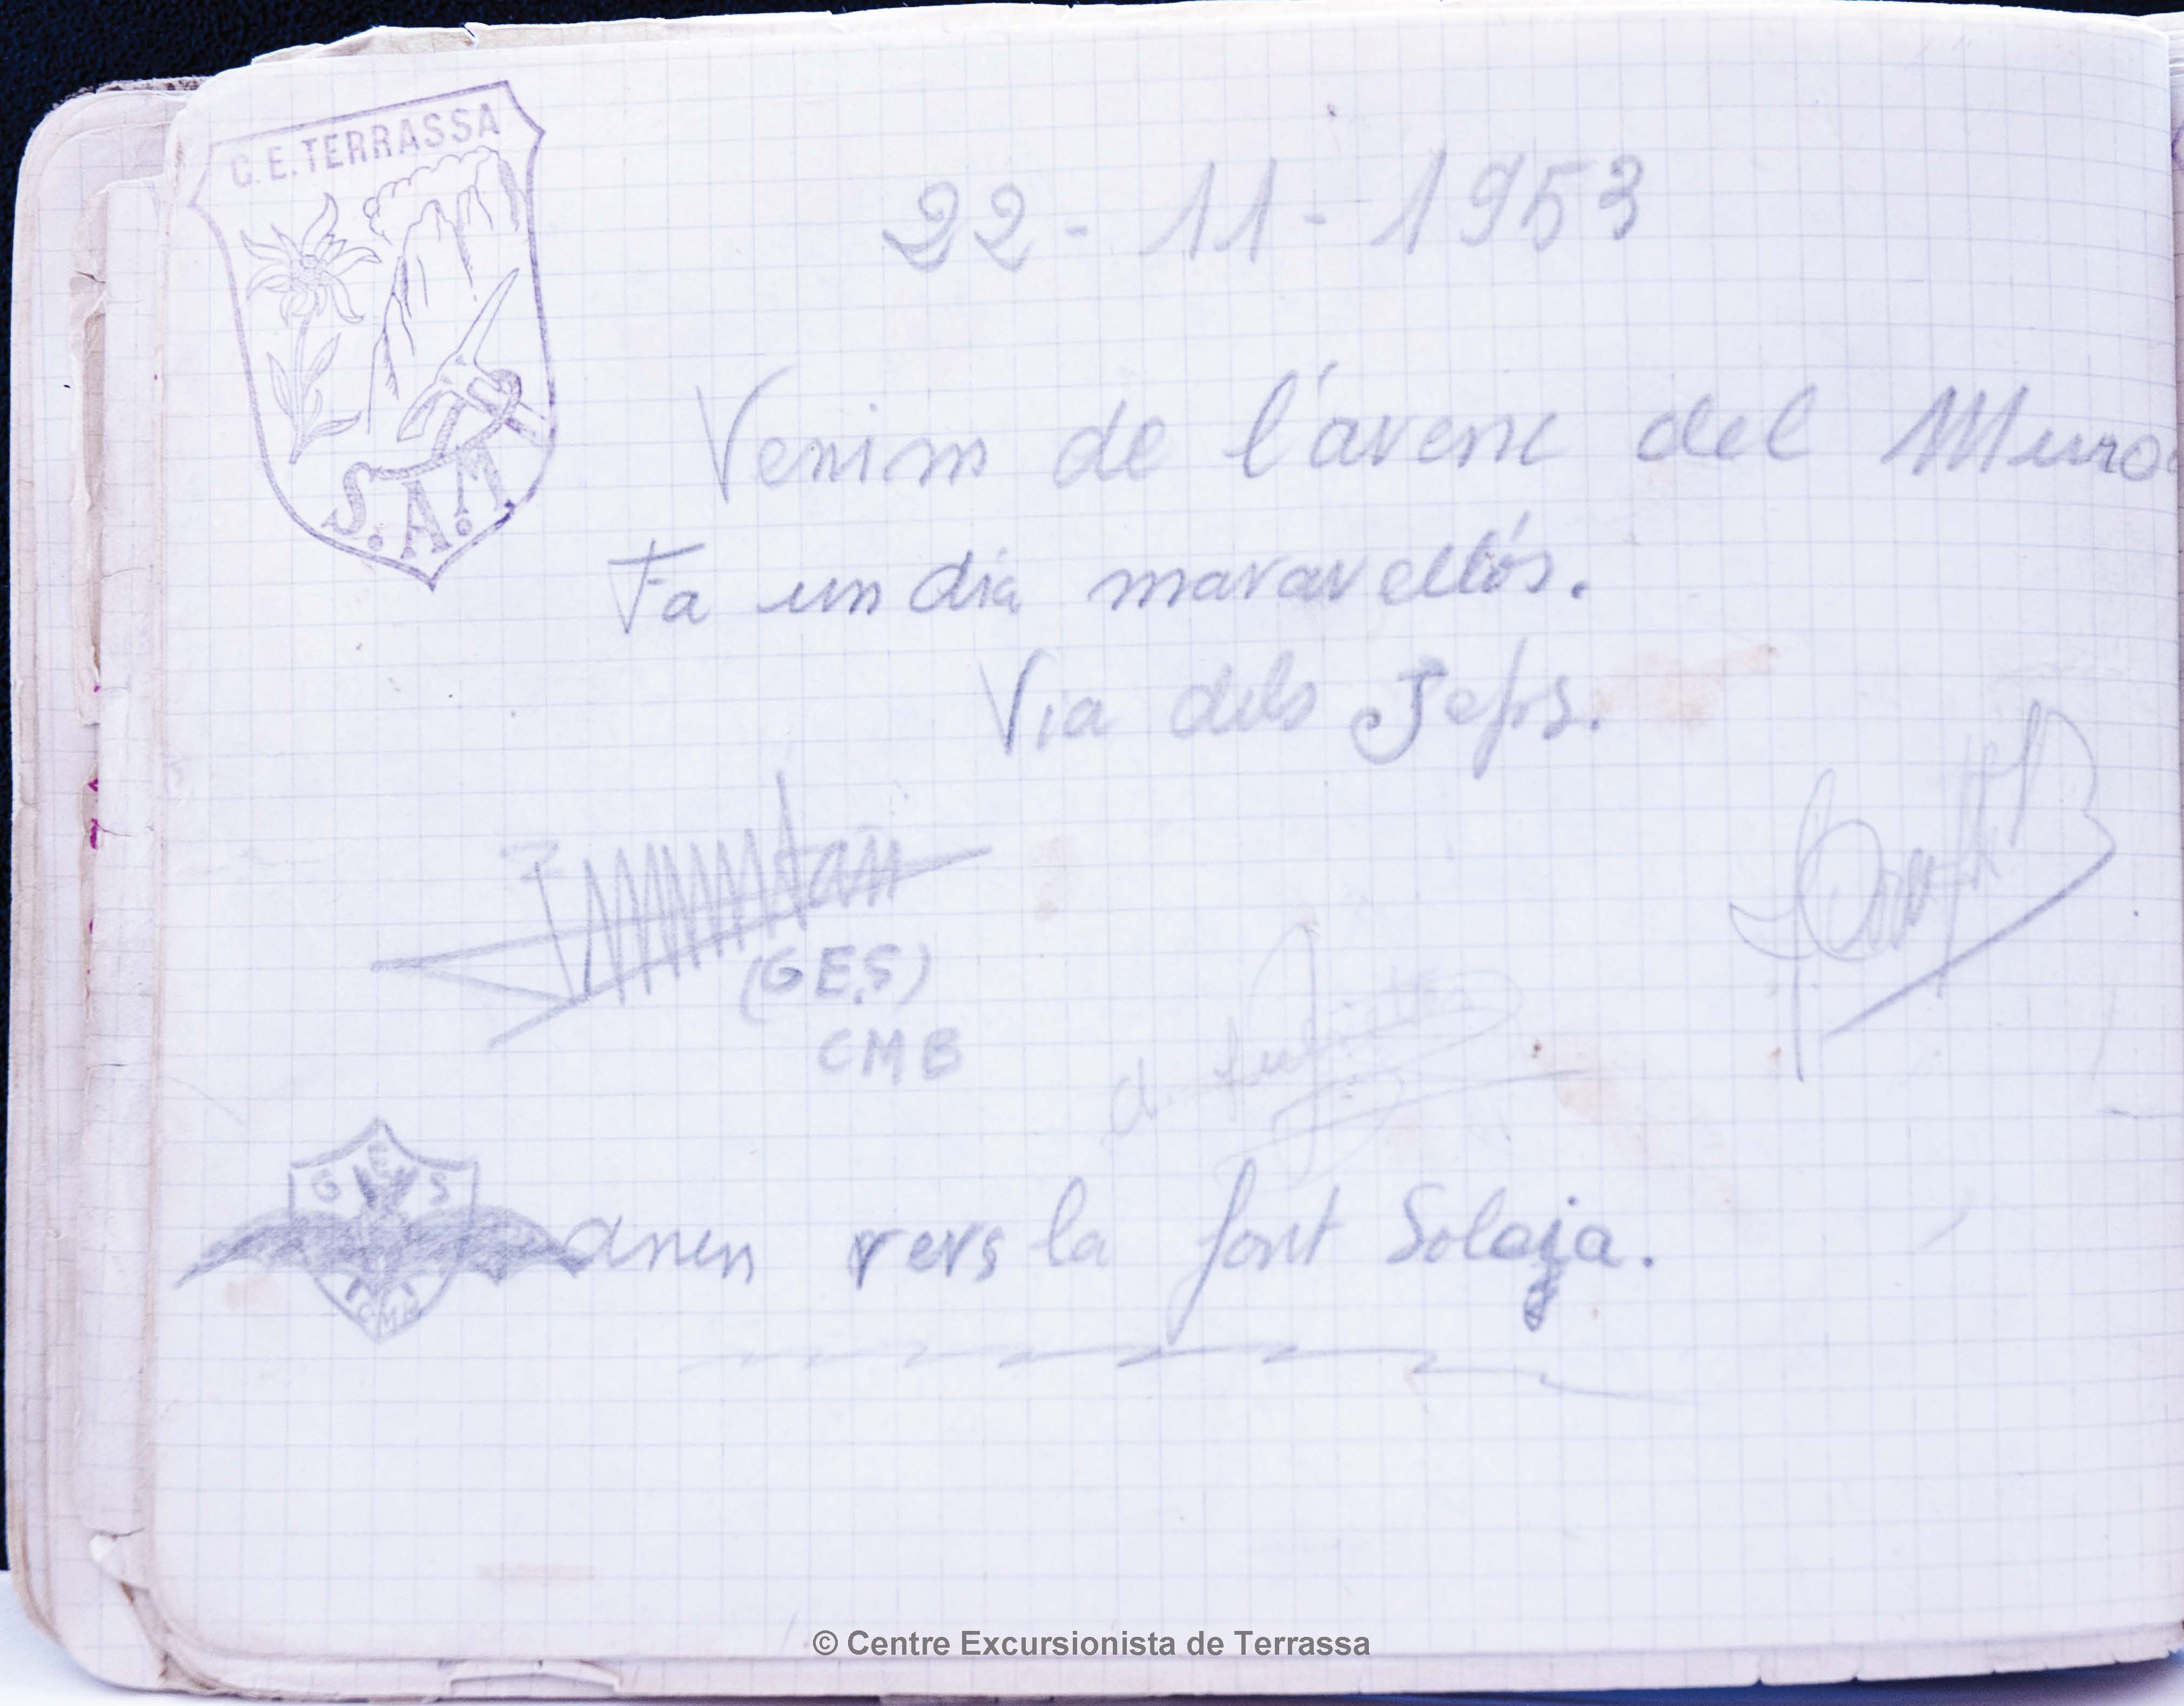 C. E. TERRASSA
S. A. M.
22 - 11 - 1953
Venim de l'avenc del Muro
Fa un dia maravellós.
Via dels Jeps.
(GES)
CMB
G E S
CMB
anen vers la font Solaja.
© Centre Excursionista de Terrassa